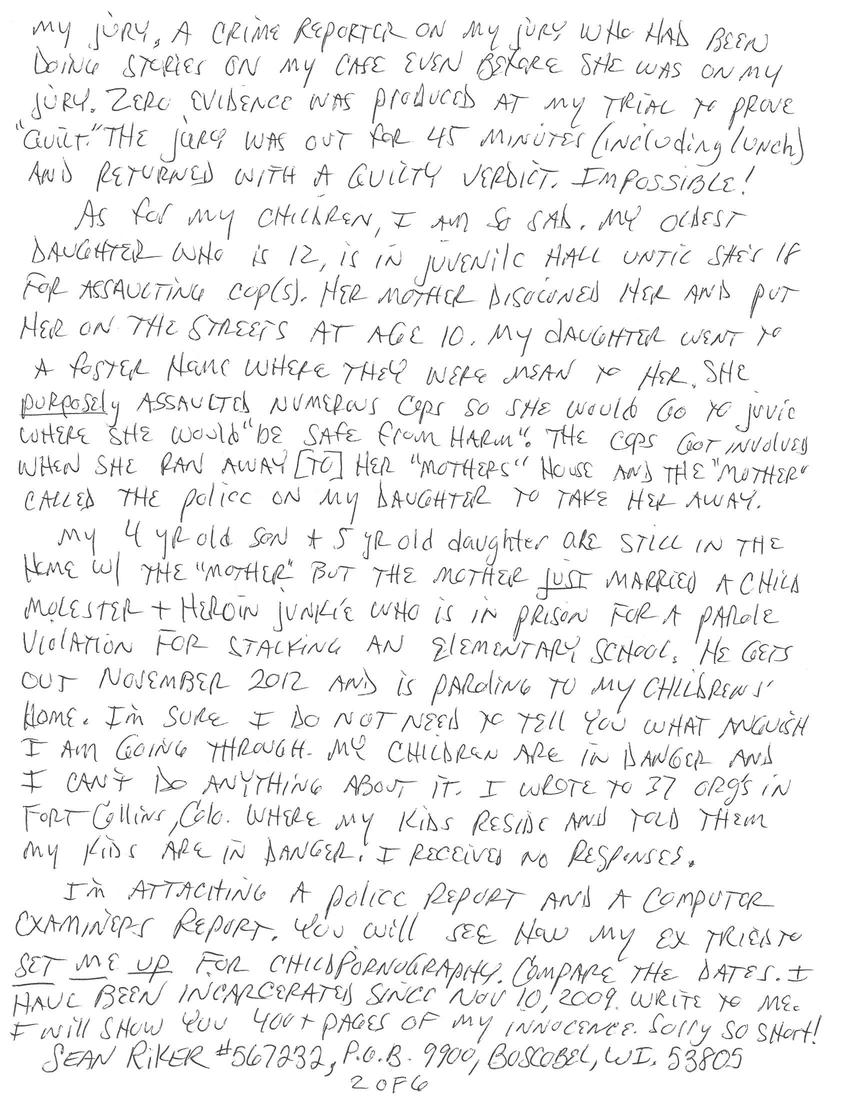 MY JURY, A CRIME REPORTER ON MY JURY WHO HAD BEEN
DOING STORIES ON MY CASE EVEN BEFORE SHE WAS ON MY
JURY. ZERO EVIDENCE WAS PRODUCED AT MY TRIAL TO PROVE
"GUILT." THE JURY WAS OUT FOR 45 MINUTES (including lunch)
AND RETURNED WITH A GUILTY VERDICT. IMPOSSIBLE!
AS FOR MY CHILDREN, I AM SO SAD. MY OLDEST
DAUGHTER WHO IS 12, IS IN JUVENILE HALL UNTIL SHE'S 18
FOR ASSAULTING COP(S). HER MOTHER DISOWNED HER AND PUT
HER ON THE STREETS AT AGE 10. MY DAUGHTER WENT TO
A FOSTER HOME WHERE THEY WERE MEAN TO HER. SHE
PURPOSELY ASSAULTED NUMEROUS COPS SO SHE WOULD GO TO JUVIE
WHERE SHE WOULD "BE SAFE FROM HARM". THE COPS GOT INVOLVED
WHEN SHE RAN AWAY [TO] HER "MOTHERS" HOUSE AND THE "MOTHER"
CALLED THE POLICE ON MY DAUGHTER TO TAKE HER AWAY.
MY 4 YR OLD SON + 5 YR OLD daughter ARE STILL IN THE
HOME W/ THE "MOTHER" BUT THE MOTHER JUST MARRIED A CHILD
MOLESTER + HEROIN JUNKIE WHO IS IN PRISON FOR A PAROLE
VIOLATION FOR STALKING AN ELEMENTARY SCHOOL. HE GETS
OUT NOVEMBER 2012 AND IS PAROLING TO MY CHILDRENS'
HOME. I'M SURE I DO NOT NEED TO TELL YOU WHAT ANGUISH
I AM GOING THROUGH. MY CHILDREN ARE IN DANGER AND
I CAN'T DO ANYTHING ABOUT IT. I WROTE TO 37 ORG'S IN
FORT COLLINS, COLO. WHERE MY KIDS RESIDE AND TOLD THEM
MY KIDS ARE IN DANGER. I RECEIVED NO RESPONSES.
I'M ATTACHING A POLICE REPORT AND A COMPUTER
EXAMINERS REPORT. YOU WILL SEE HOW MY EX TRIED TO
SET ME UP FOR CHILD PORNOGRAPHY. COMPARE THE DATES. I
HAVE BEEN INCARCERATED SINCE NOV 10, 2009. WRITE TO ME.
I WILL SHOW YOU 400+ PAGES OF MY INNOCENCE. SORRY SO SHORT!
SEAN RIKER #567232, P.O.B. 9900, BOSCOBEL, WI. 53805
2 OF 6